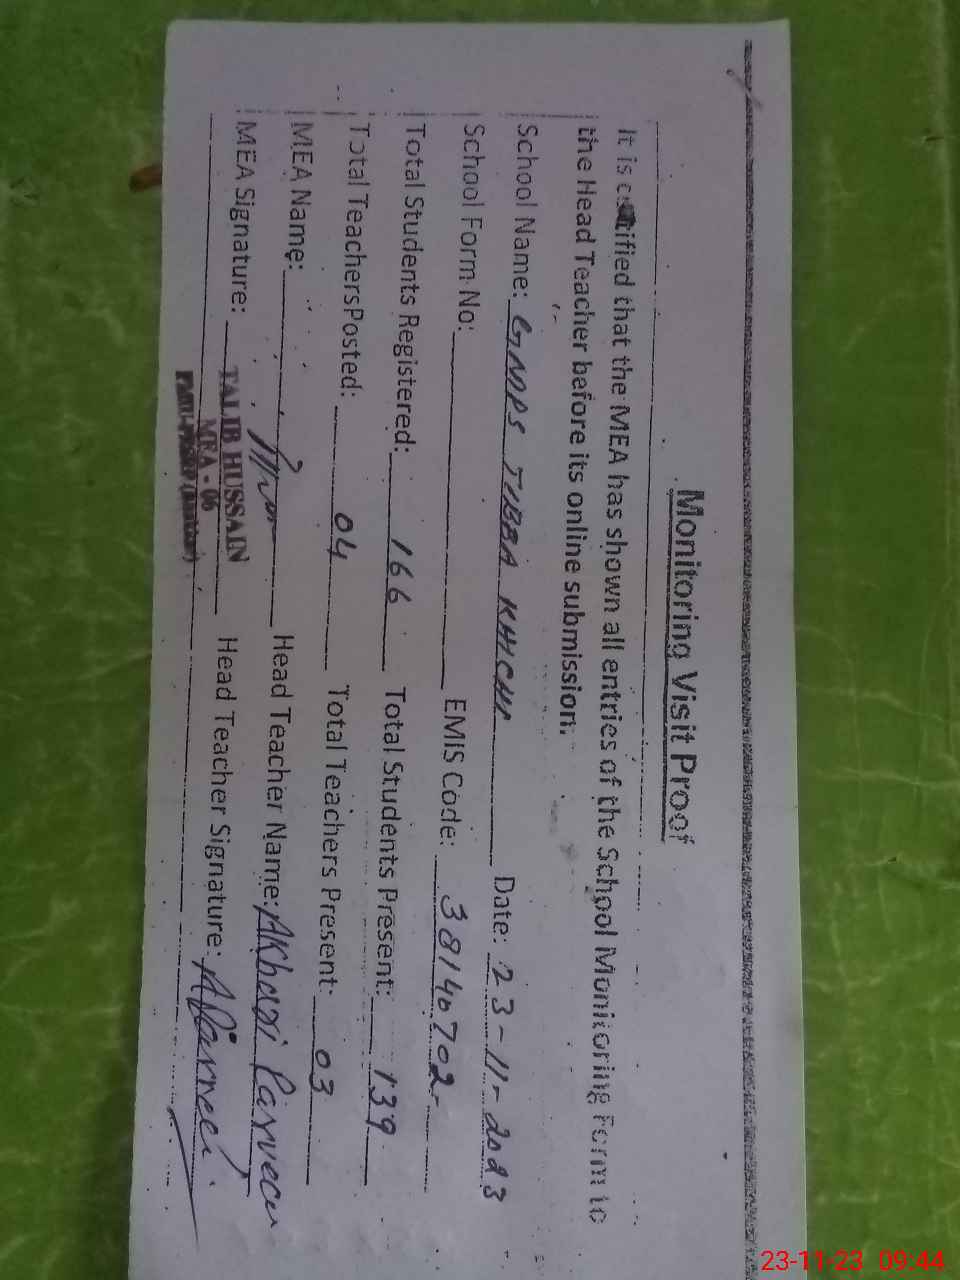 Monitoring Visit Proof
It is certified that the MEA has shown all entries of the School Monitoring Form to
the Head Teacher before its online submission.
School Name: GMPS TUBBA KHICHI Date: 23-11-2023
School Form No: EMIS Code: 38140702
Total Students Registered: 166 Total Students Present: 139
Total Teachers Posted: 04 Total Teachers Present: 03
MEA Name: Head Teacher Name: Akhtari Parveen
MEA Signature: Head Teacher Signature: A Parveen
TALIB HUSSAIN
MEA - 06
23-11-23 09:44